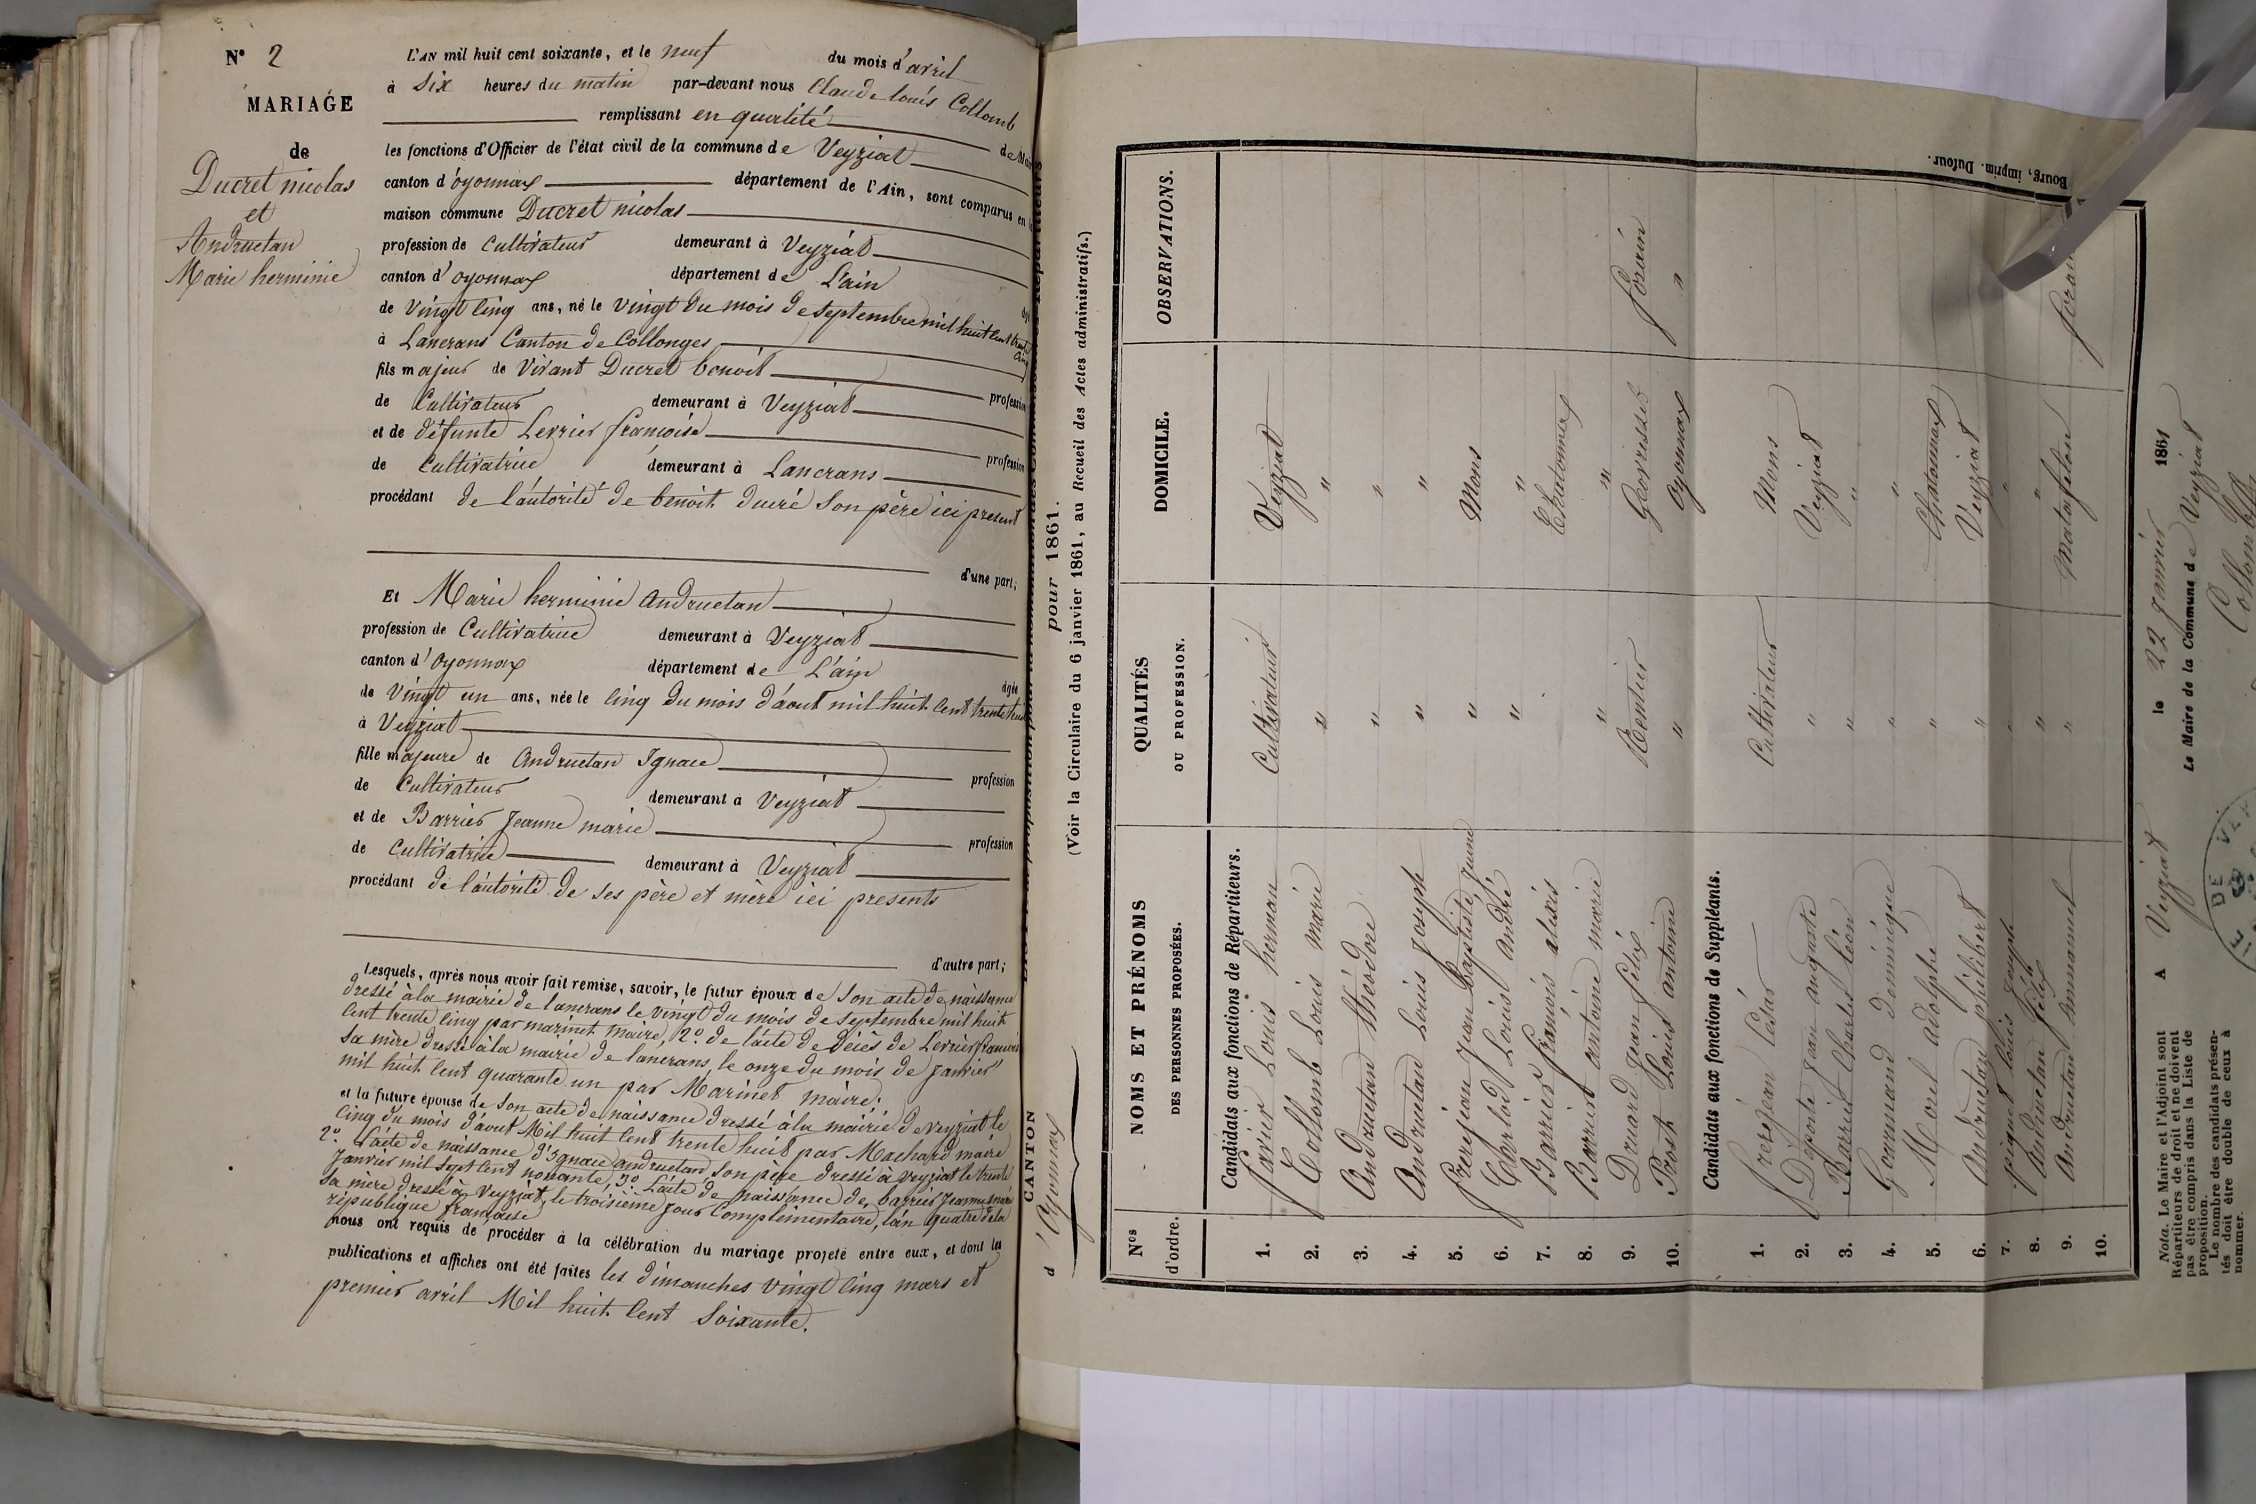 N° 2
MARIAGE
de
Ducret nicolas
et
Andruetan
Marie herminie
L'AN mil huit cent soixante, et le neuf du mois d'avril
à six heures du matin par-devant nous Claude louis Collomb
remplissant en qualité de Maire
les fonctions d'Officier de l'état civil de la commune de Veyziat
canton d'oyonnax département de l'Ain, sont comparus en la
maison commune Ducret nicolas
profession de Cultivateur demeurant à Veyziat
canton d'oyonnax département de L'ain
de Vingt Cinq ans, né le vingt du mois de septembre mil huit Cent trente Cinq
à Lancrans Canton de Collonges
fils majeur de Vivant Ducret benoit profession
de Cultivateur demeurant à Veyziat
et de défunte Levrier françoise profession
de Cultivatrice demeurant à Lancrans
procédant de l'autorité de benoit ducré son père ici présent
d'une part;
Et Marie herminie Andruetan
profession de Cultivatrice demeurant à Veyziat
canton d'Oyonnax département de L'ain âgée
de Vingt un ans, née le Cinq du mois d'aout mil huit Cent trente huit
à Veyziat
fille majeure de Andruetan Ignace profession
de Cultivateur demeurant à Veyziat
et de Barrier Jeanne marie profession
de Cultivatrice demeurant à Veyziat
procédant de l'autorité de ses père et mère ici présents
d'autre part;
Lesquels, après nous avoir fait remise, savoir, le futur époux de Son acte de naissance
dressé à la mairie de lancrans le vingt du mois de septembre mil huit
Cent trente Cinq par marinet maire, 2° de l'acte de décès de Levrier françoise
sa mère dressé à la mairie de lancrans, le onze du mois de Janvier
mil huit Cent quarante un par Marinet maire;
et la future épouse de Son acte de naissance dressé à la mairie de Veyziat le
Cinq du mois d'aout Mil huit Cent trente huit par Machard maire
2° L'acte de naissance d'Ignace andruetan son père dressé à Veyziat le trente
Janvier mil Sept Cent nonante, 3° L'acte de naissance de barrier Jeanne marie
sa mère dressé à Veyziat, le troisième jour Complémentaire, l'an quatre de la
république française
nous ont requis de procéder à la célébration du mariage projeté entre eux, et dont les
publications et affiches ont été faites les dimanches vingt Cinq mars et
premier avril Mil huit Cent Soixante.
CANTON
d'Oyonnax
pour 1861.
(Voir la Circulaire du 6 janvier 1861, au Recueil des Actes administratifs.)
Nos d'ordre. NOMS ET PRÉNOMS DES PERSONNES PROPOSÉES. QUALITÉS OU PROFESSION. DOMICILE. OBSERVATIONS.
Candidats aux fonctions de Répartiteurs.
1. Louis herman Cultivateur Veyziat
2. Collomb Louis marie " "
3. Andruetan théodore " "
4. Andruetan Louis Joseph " "
5. frerejean Jean Baptiste Jeune " Mons
6. Carlod Louis André " "
7. Barrier françois alexis Chatonnax
8. Barrier antoine marie " "
9. Druard Jean félix Rentier Geovresset forain
10. Prost Louis antoine " Oyonnax "
Candidats aux fonctions de Suppléants.
1. frerejean César Cultivateur Mons
2. Deporte Jean auguste " Veyziat
3. Barrier Charles léon " "
4. Gourmand dominique " "
5. Morel Adolphe " Chatonnax
6. Andruetan philibert " Veyziat
7. piquet louis Joseph " "
8. Andruetan félix " "
9. Andruetan Emmanuel " Matafelon forain
10.
A Veyziat le 22 Janvier 1861
Le Maire de la Commune de Veyziat
Collomb
DE VEY
Nota. Le Maire et l'Adjoint sont
Répartiteurs de droit et ne doivent
pas être compris dans la Liste de
proposition.
Le nombre des candidats présen-
tés doit être double de ceux à
nommer.
Bourg, imprim. Dufour.